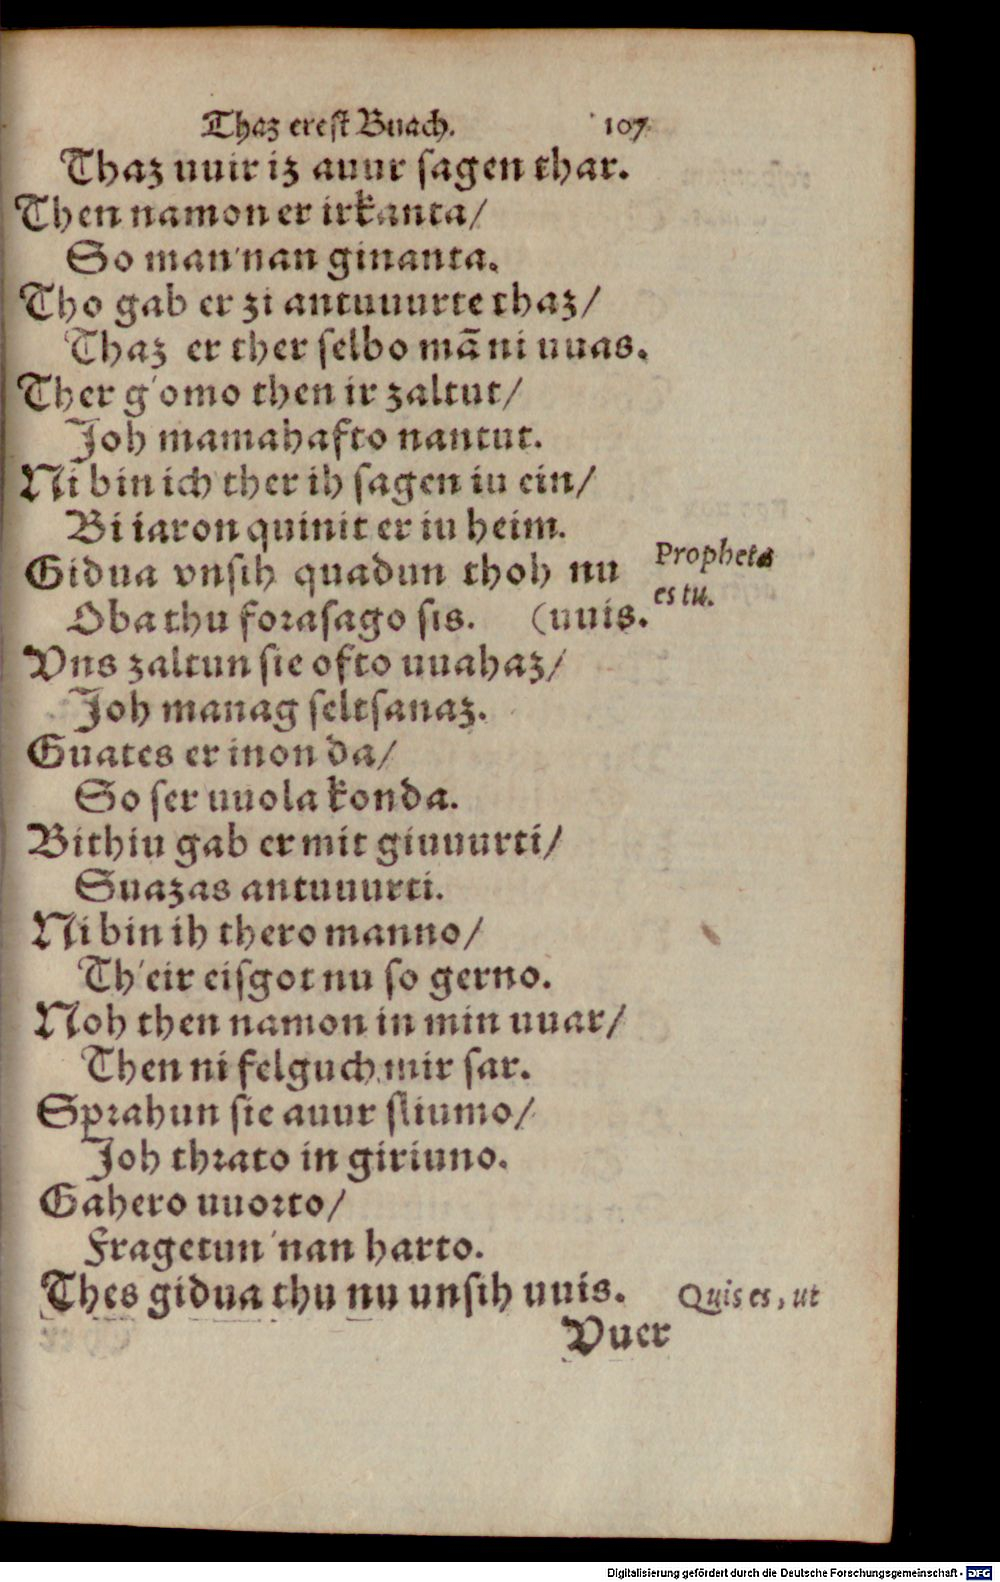 Thaz erest Buach. 107.
Thaz uuir iz auur sagen thar.
Then namon er irkanta/
So man'nan ginanta.
Tho gab er zi antuuurte thaz/
Thaz er ther selbo mā ni uuas.
Ther g'omo then ir zaltut/
Joh mamahafto nantut.
Ni bin ich ther ih sagen iu ein/
Bi iaron quinit er iu heim.
Gidua vnsih quadun thoh nu
Oba thu forasago sis. (uuis.
Propheta
es tu.
Vns zaltun sie ofto uuahaz/
Joh manag seltsanaz.
Guates er inon da/
So ser uuola konda.
Bithiu gab er mit giuuurti/
Suazas antuuurti.
Ni bin ih thero manno/
Th'eir eisgot nu so gerno.
Noh then namon in min uuar/
Then ni felguch mir sar.
Sprahun sie auur sliumo/
Joh thrato in giriuno.
Gahero uuorto/
Fragetun 'nan harto.
Thes gidua thu nu unsih uuis.
Quis es, ut
Vuer
Digitalisierung gefördert durch die Deutsche Forschungsgemeinschaft - DFG